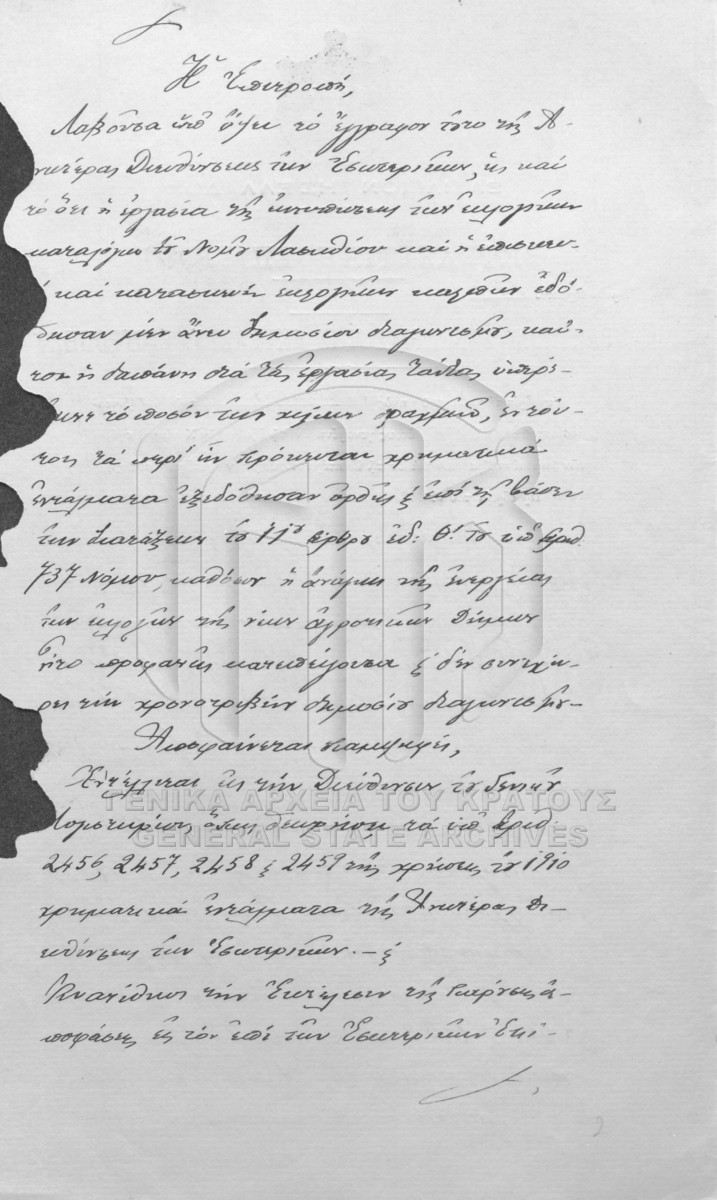 Ἡ Ἐπιτροπή,
Λαβοῦσα ὑπ' ὄψει τό ἔγγραφον τοῦτο τῆς Ἀ-
νωτέρας Διευθύνσεως τῶν Ἐσωτερικῶν, ὡς καί
τό ὅτι ἡ ἐργασία τῆς ἐκτυπώσεως τῶν ἐκλογικῶν
καταλόγων τοῦ Νομοῦ Λασιθίου καί ἡ ἐπισκευ-
ή καί κατασκευή ἐκλογικῶν καλπῶν ἐδό-
θησαν μέν ἄνευ δημοσίου διαγωνισμοῦ, καί-
τοι ἡ δαπάνη διά τάς ἐργασίας ταύτας ὑπερέ-
βαινε τό ποσόν τῶν χιλίων δραχμῶν, ἐν τού-
τοις τά περί ὧν πρόκειται χρηματικά
ἐντάλματα ἐξεδόθησαν ὀρθῶς ἐπί τῇ βάσει
τῶν διατάξεων τοῦ 11ου ἄρθρου ἐδ: θ'. τοῦ ὑπ' ἀριθ.
737 Νόμου, καθόσον ἡ ἀνάγκη τῆς ἐνεργείας
τῶν ἐκλογῶν τῶν νέων ἀγροτικῶν Δήμων
ἦτο προφανῶς κατεπείγουσα & δέν συνεχώ-
ρει τήν χρονοτριβήν δημοσίου διαγωνισμοῦ-
Ἀποφαίνεται παμψηφεί,
Ἐντέλλεται εἰς τήν Διεύθυνσιν τοῦ Γενικοῦ
Λογιστηρίου ὅπως θεωρήσῃ τά ὑπ' ἀριθ.
2456, 2457, 2458 & 2459 τῆς χρήσεως τοῦ 1910
χρηματικά ἐντάλματα τῆς Ἀνωτέρας Δι-
ευθύνσεως τῶν Ἐσωτερικῶν.— &
Ἀνατίθησι τήν ἐκτέλεσιν τῆς παρούσης ἀ-
ποφάσεως εἰς τόν ἐπί τῶν Ἐσωτερικῶν Ἐπί-
ΓΕΝΙΚΑ ΑΡΧΕΙΑ ΤΟΥ ΚΡΑΤΟΥΣ
GENERAL STATE ARCHIVES
2